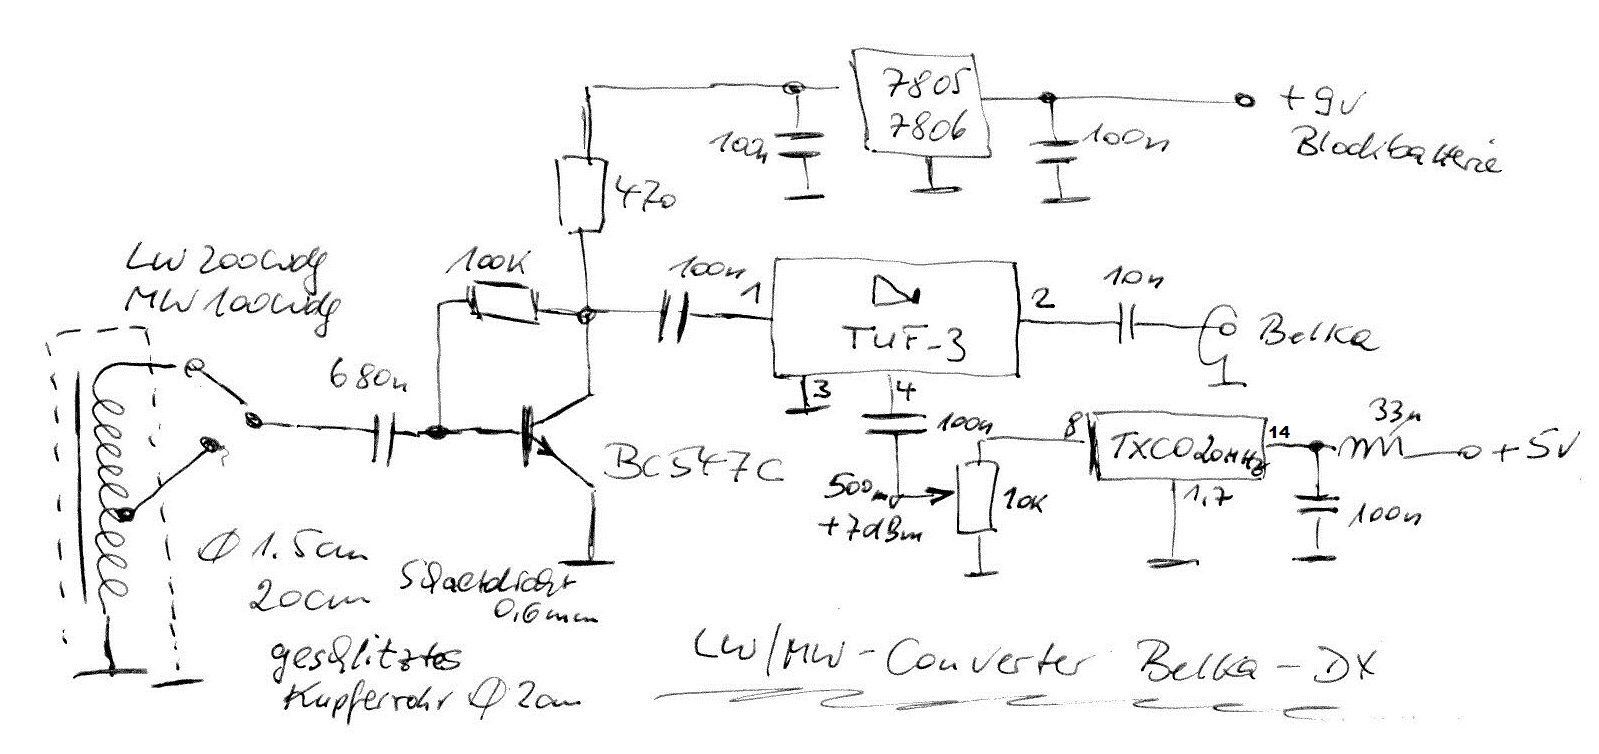 7805
7806
+9v
Blockbatterie
100n
100n
470
LW 200Wdg
MW 100Wdg
100K
100n
1
TUF-3
2
10n
Belka
680n
3
4
BC547C
100n
500m
+7dBm
10K
8
TXCO 20MHz
14
1,7
33µ
+5V
100n
Ø 1.5cm
20cm
Schaltdraht
0,6mm
geschlitztes
Kupferrohr Ø 2cm
LW/MW-Converter Belka-DX